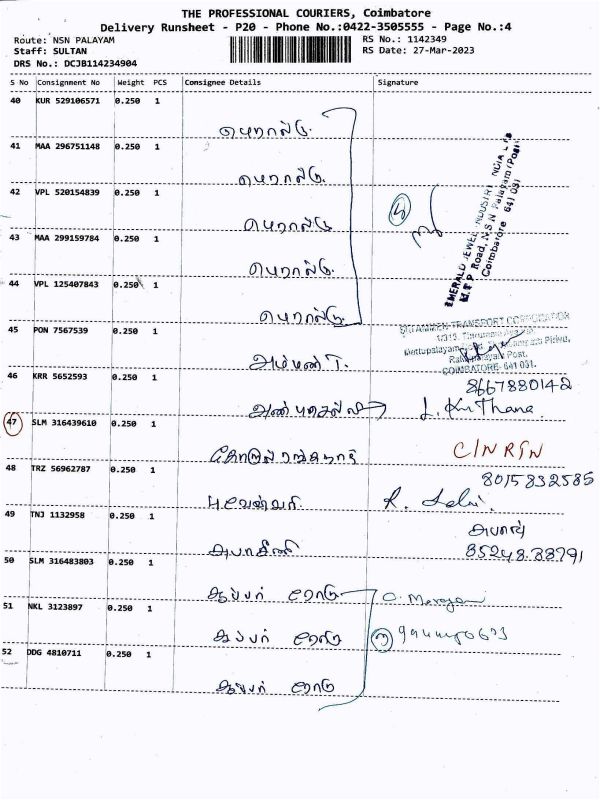 THE PROFESSIONAL COURIERS, Coimbatore
Delivery Runsheet - P20 - Phone No.:0422-3505555 - Page No.:4
Route: NSN PALAYAM
RS No.: 1142349
Staff: SULTAN
RS Date: 27-Mar-2023
DRS No.: DCJB114234904
S No Consignment No Weight PCS Consignee Details Signature
40 KUR 529106571 0.250 1
எமரால்டு.
41 MAA 296751148 0.250 1
எமரால்டு.
42 VPL 520154839 0.250 1
எமரால்டு
5
EMERALD JEWEL INDUSTRY INDIA LTD
M.T.P. Road, N S N Palayam (Post)
Coimbatore 641 031
43 MAA 299159784 0.250 1
எமரால்டு.
44 VPL 125407843 0.250 1
எமரால்டு.
45 PON 7567539 0.250 1
TRANSPORT CORPORATION
Mettupalayam
Post.
COIMBATORE- 641 031.
அம்மன் T.
46 KRR 5652593 0.250 1
8667880142
47 SLM 316439610 0.250 1
C/N RTN
48 TRZ 56962787 0.250 1
8015832585
புவனேஸ்வரி
R.
49 TNJ 1132958 0.250 1
50 SLM 316483803 0.250 1
சூப்பர்
51 NKL 3123897 0.250 1
சூப்பர்
3
52 DDG 4810711 0.250 1
சூப்பர்